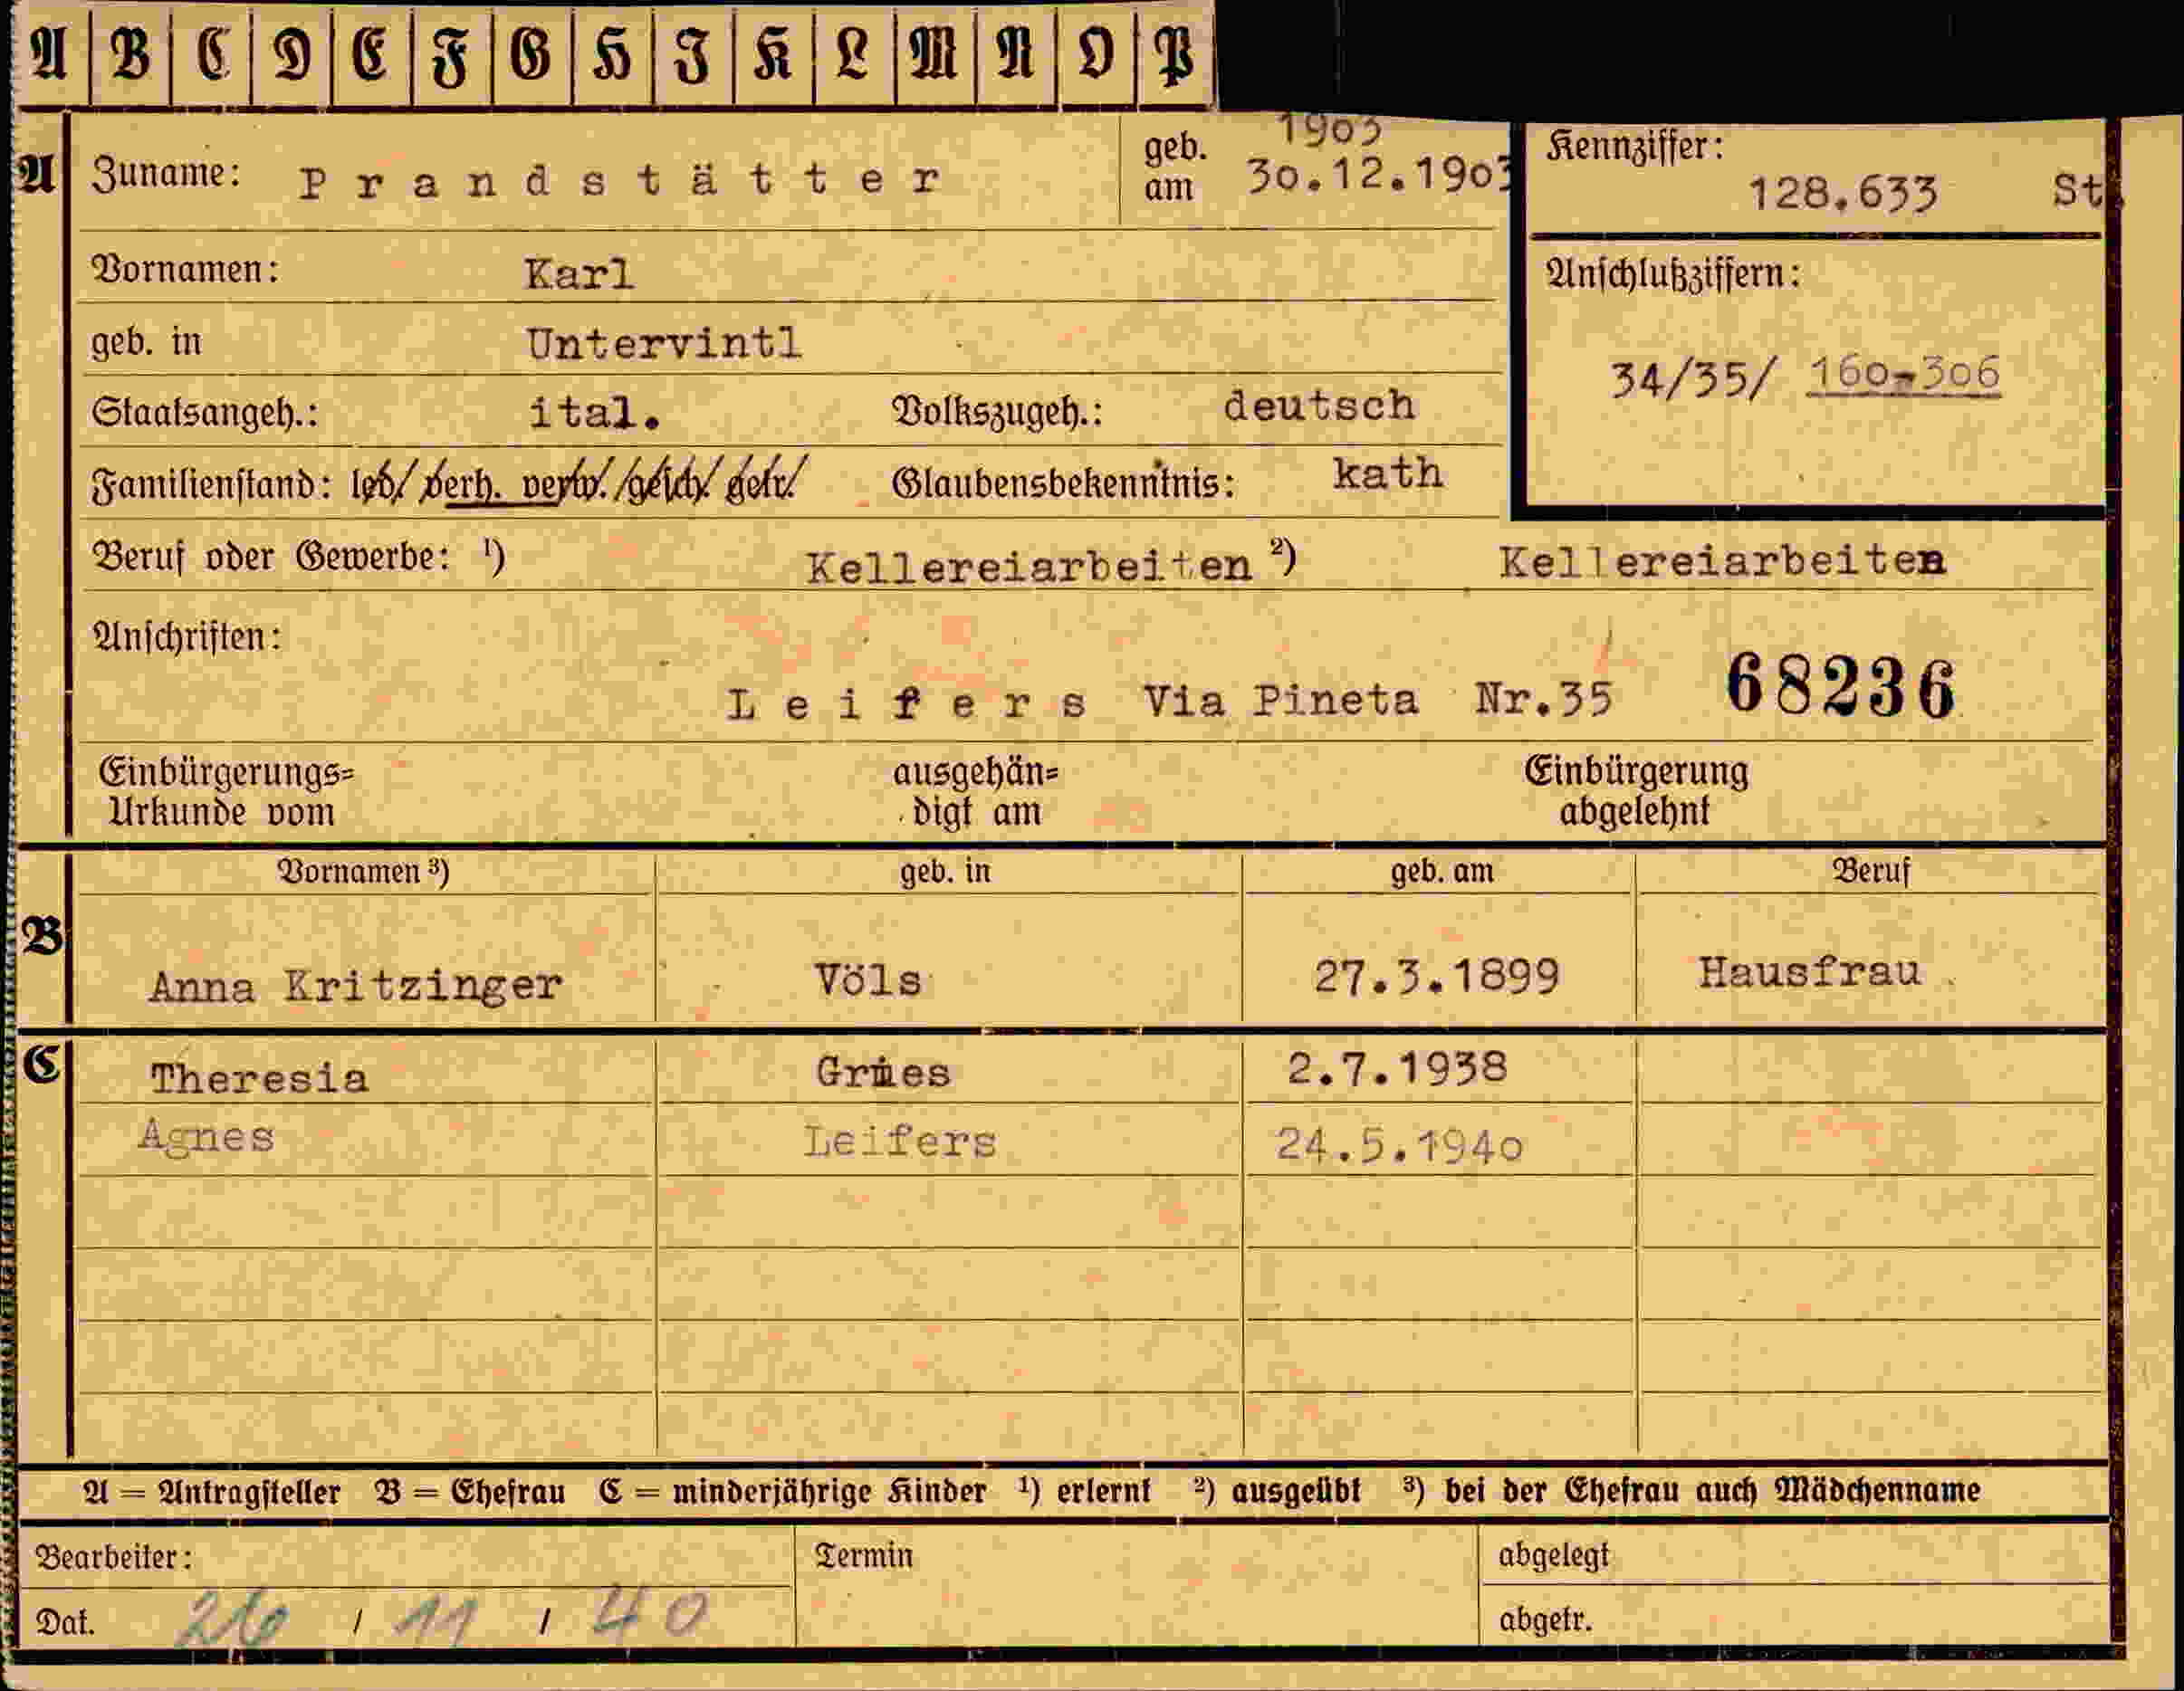 A B C D E F G H I K L M N O P
1903
A Zuname: Prandstätter geb. am 30.12.1903 Kennziffer: 128.633 St
Vornamen: Karl Anschlußziffern:
geb. in Untervintl
34/35/ 160-306
Staatsangeh.: ital. Volkszugeh.: deutsch
Familienstand: led/ verh. verw./gesch/ getr. Glaubensbekenntnis: kath
Beruf oder Gewerbe: ¹) Kellereiarbeiten ²) Kellereiarbeiten
Anschriften:
Leifers Via Pineta Nr.35 68236
Einbürgerungs= ausgehän= Einbürgerung
Urkunde vom digt am abgelehnt
Vornamen ³) geb. in geb. am Beruf
B Anna Kritzinger Völs 27.3.1899 Hausfrau
C Theresia Gries 2.7.1938
Agnes Leifers 24.5.1940
A = Antragsteller B = Ehefrau C = minderjährige Kinder ¹) erlernt ²) ausgeübt ³) bei der Ehefrau auch Mädchenname
Bearbeiter: Termin abgelegt
Dat. 26 / 11 / 40 abgetr.